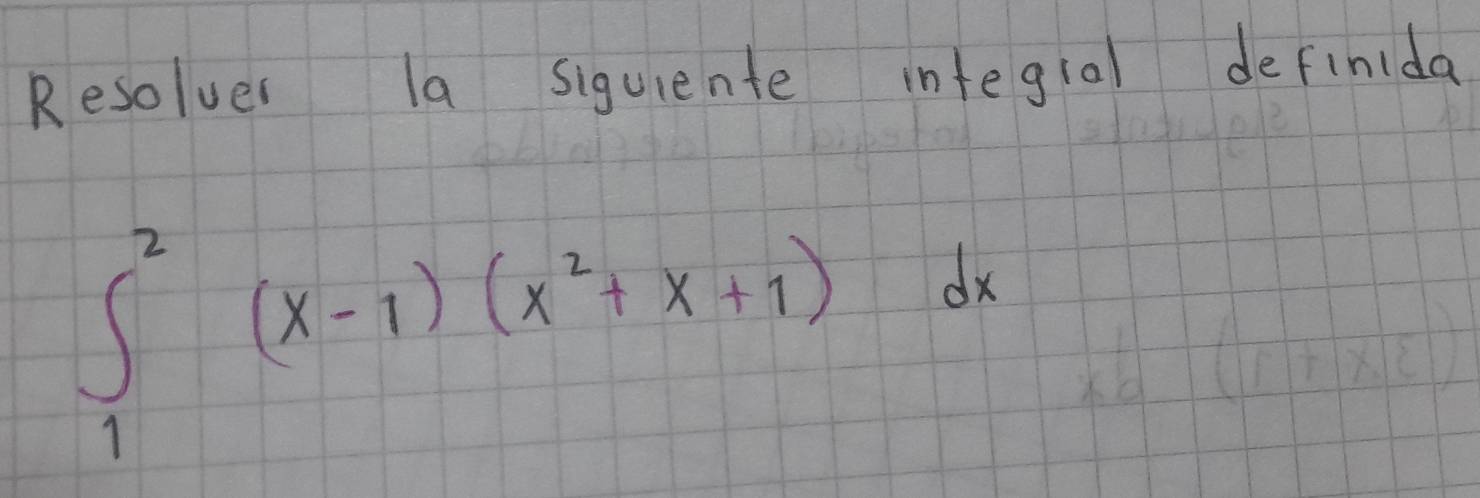 Resolver la siguiente integral definida
∫₁² (x - 1) (x² + x + 1) dx